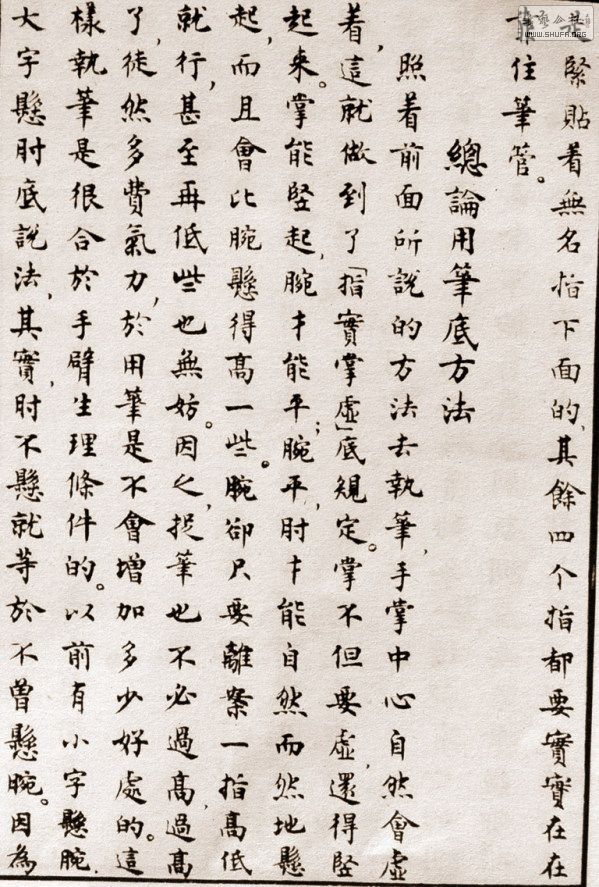 是緊貼着無名指下面的,其餘四个指都要實實在在
住筆管。
總論用筆底方法
照着前面所說的方法去執筆,手掌中心自然會虛
着,這就做到了「指實掌虛」底規定。掌不但要虛,還得竪
起來。掌能竪起,腕才能平;腕平,肘才能自然而然地懸
起,而且會比腕懸得高一些。腕卻只要離案一指高低
就行,甚至再低些也無妨。因之,捉筆也不必過高,過高
了,徒然多費氣力,於用筆是不會增加多少好處的。這
樣執筆是很合於手臂生理條件的。以前有小字懸腕,
大字懸肘底說法,其實,肘不懸就等於不曾懸腕。因為
WWW.SHUFA.ORG